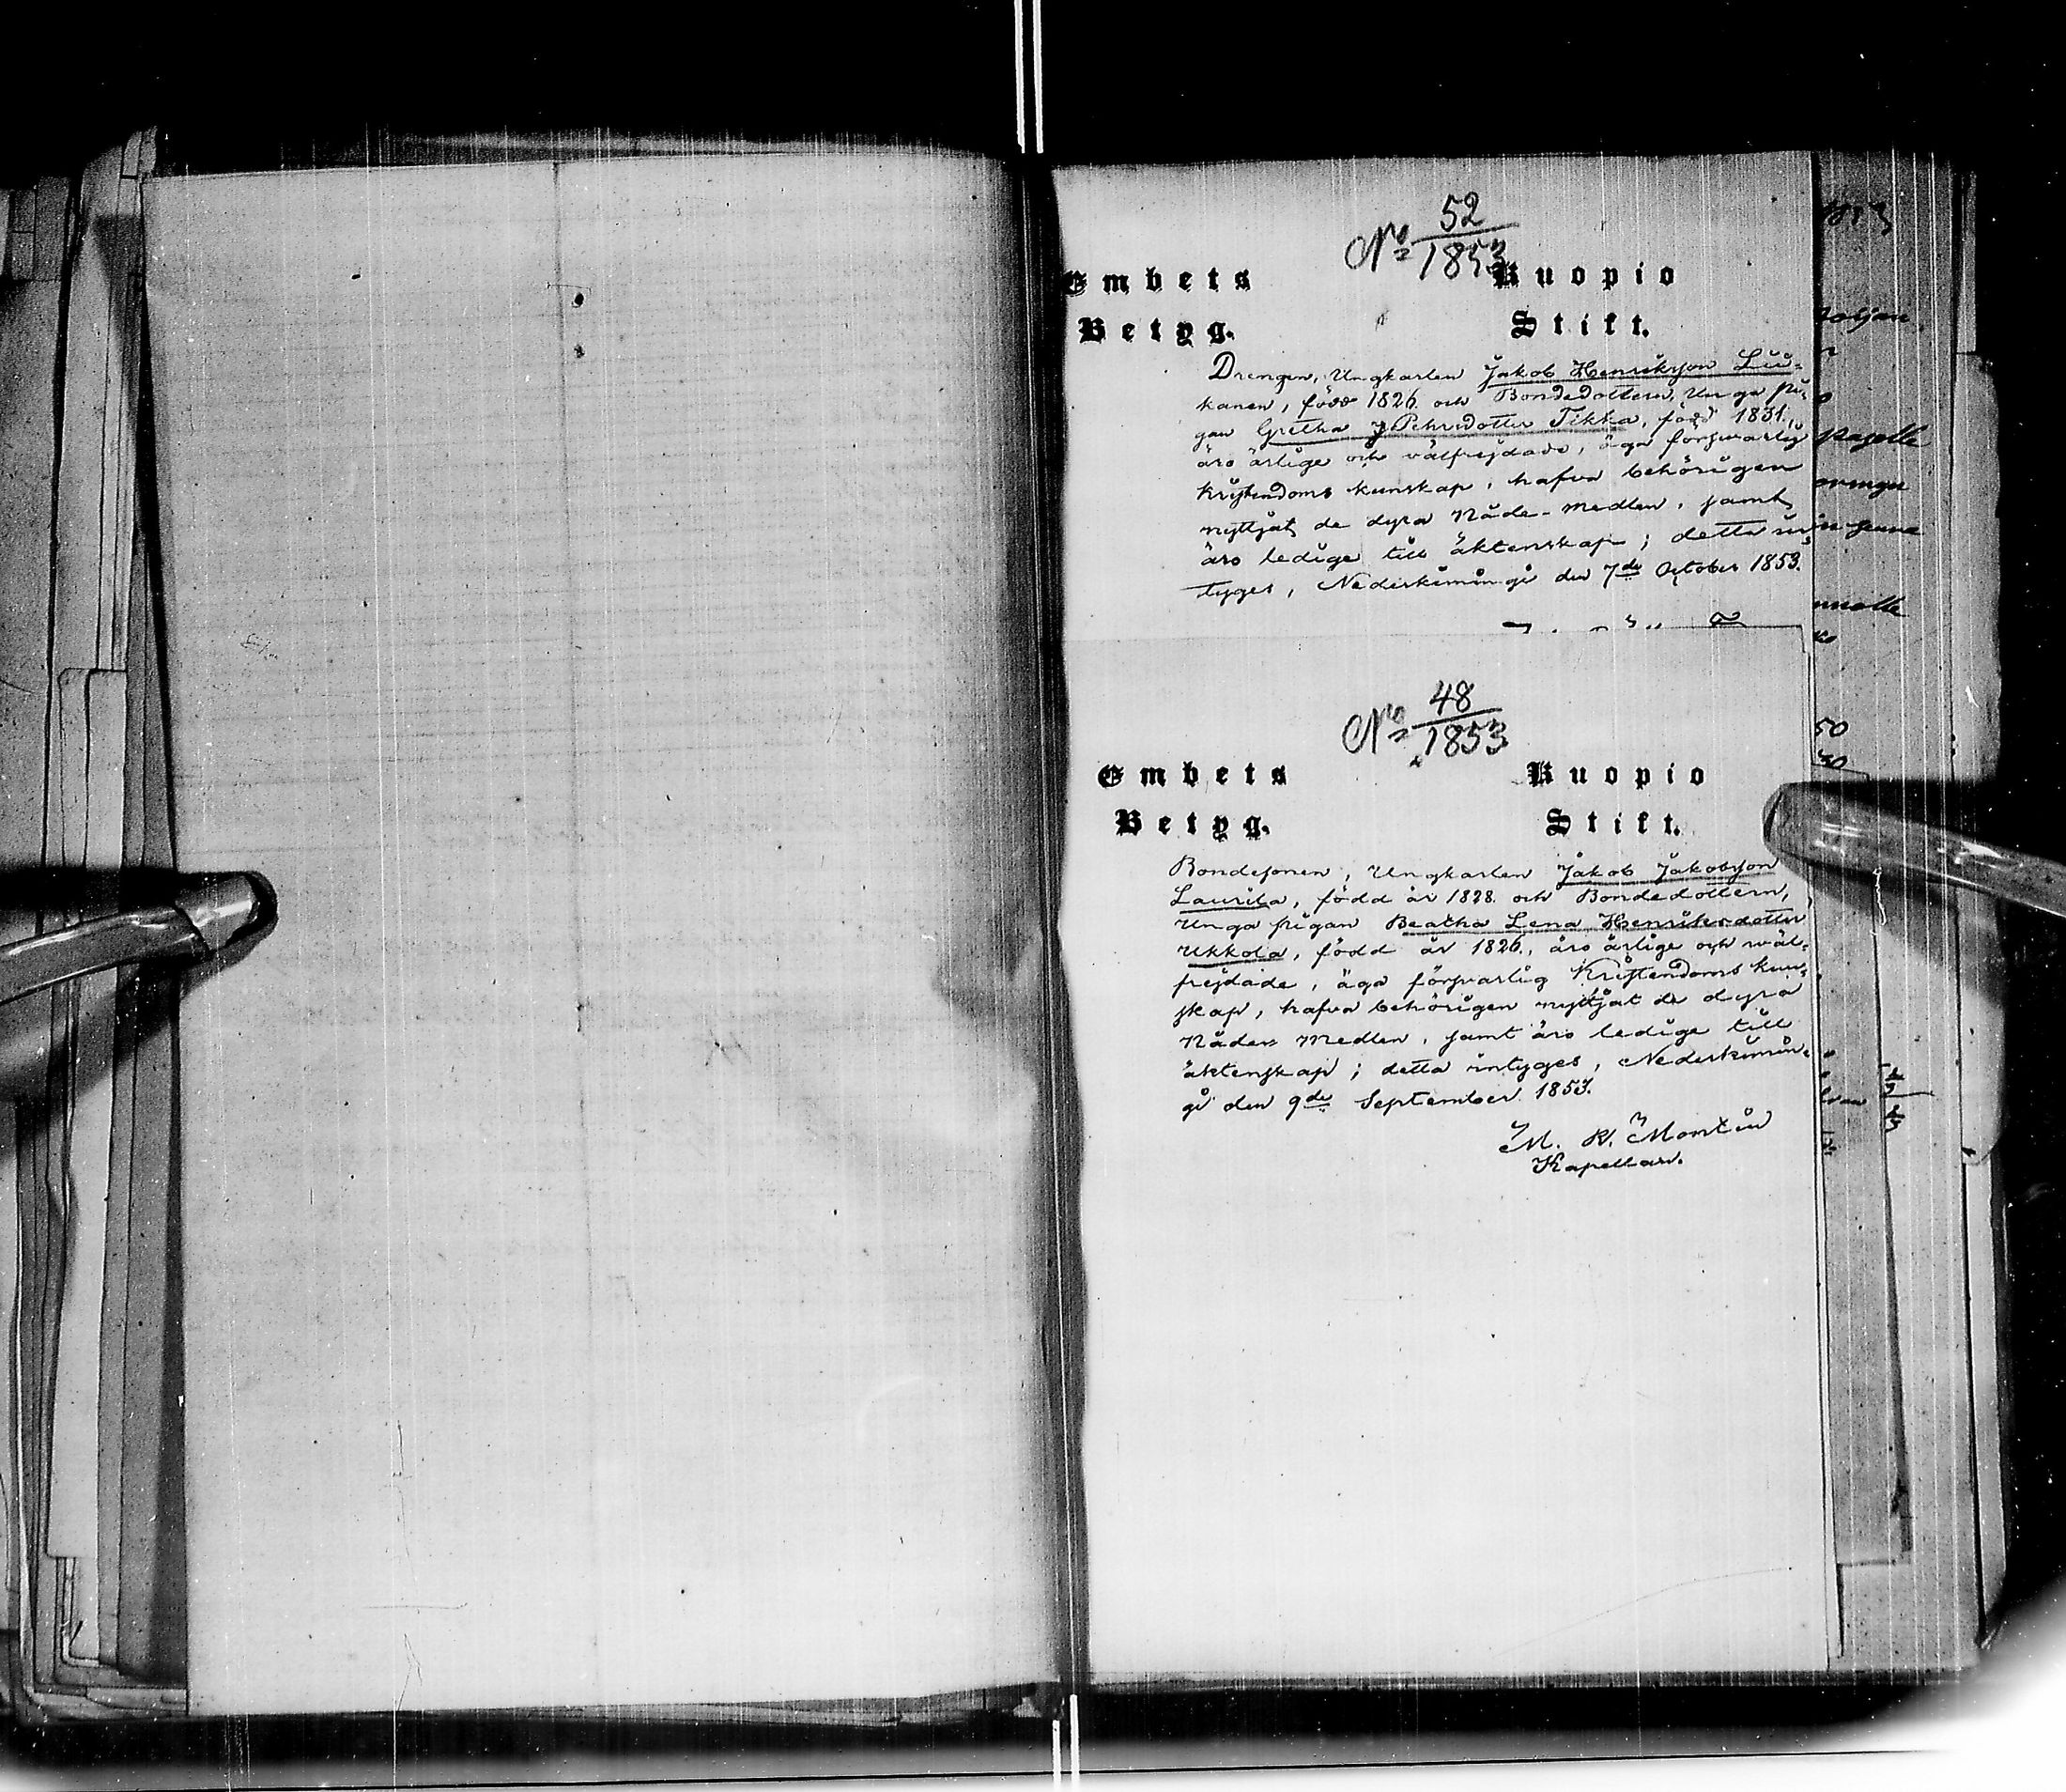 No 52
1853
Embets Kuopio
Betyg. Stift.
Drengen, Ungkarlen Jakob Henriksson Liu-
kanen, född 1826. och Bondedottern, Unga pi-
gan Gretha J Pehrsdotter Tikka, född 1831.,
äro ärlige och välfrejdade, äga förswarlig
Kristendoms kunskap, hafva behörigen
nyttjat de dyra Nåde-medlen, samt
äro ledige till äktenskap; detta in-
tyges, Nederkimingi den 7de October 1853.
No 48
1853
Embets Kuopio
Betyg. Stift.
Bondesonen, Ungkarlen Jakob Jakobsson
Laurila, född år 1828. och Bondedottern,
Unga pigan Beatha Lena Henriksdotter
Ukkola, född år 1826., äro ärlige och wäl-
frejdade, äga förswarlig Kristendoms kun-
skap, hafva behörigen nyttjat de dyra
Nådens Medlen, samt äro ledige till
äktenskap; detta intyges, Nederkimin-
gi den 9de September 1853.
M. W. Montin
Kapellan.
50